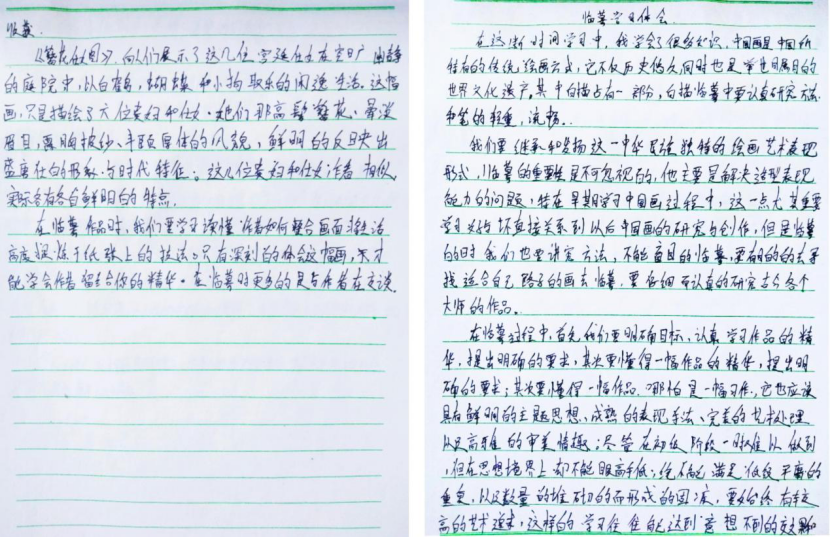 临摹
《簪花仕女图》，向人们展示了这几位宫廷仕女在空旷幽静
的庭院中，以白鹤，蝴蝶和小狗取乐的闲逸生活。这幅
画，只是描绘了六位贵妇和仕女。她们那高髻簪花、晕淡
眉目，露胸披纱、丰颐厚体的风貌，鲜明的反映出
盛唐仕女的形象与时代特征。这几位贵妇和仕女看相似，
实际各有各自鲜明的特点。
在临摹作品时，我们要学习读懂作者如何整合画面
高度提炼于纸张上的技法，只有深刻的体会这幅画，才
能学会作者留给你的精华。在临摹时更多的是与作者在交谈。
临摹学习体会
在这段时间学习中，我学会了很多知识，中国画是中国所
特有的传统绘画方式，它不仅历史悠久同时也是举世瞩目的
世界文化遗产。其中白描占有一部分，白描临摹中要认真研究
用笔的轻重，流畅。
我们要继承和发扬这一中华民族独特的绘画艺术表现
形式，临摹的重要性是不可忽视的，他主要是解决造型表现
能力的问题，特在早期学习中国画过程中，这一点尤其重要
学习好坏直接关系到以后中国画的研究与创作，但是临摹
的时我们也要讲究方法，不能盲目的临摹，要有目的的去寻
找适合自己路子的画去临摹，要仔细而认真的研究古今各个
大师的作品。
在临摹过程中，首先我们要明确目标，认真学习作品的精
华，提出明确的要求，其次要懂得一幅作品的精华，提出明
确的要求；其次要懂得一幅作品，哪怕是一幅习作，它也应该
具有鲜明的主题思想、成熟的表现手法、完美的艺术处理
以及高雅的审美情趣；尽管在初级阶段一时难以做到
，但在思想境界上却不能眼高手低；绝不能满足低级平庸的
重复，以及数量的堆砌而形成的图，要始终有较
高的艺术追求，这样的学习往往能达到意想不到的效果